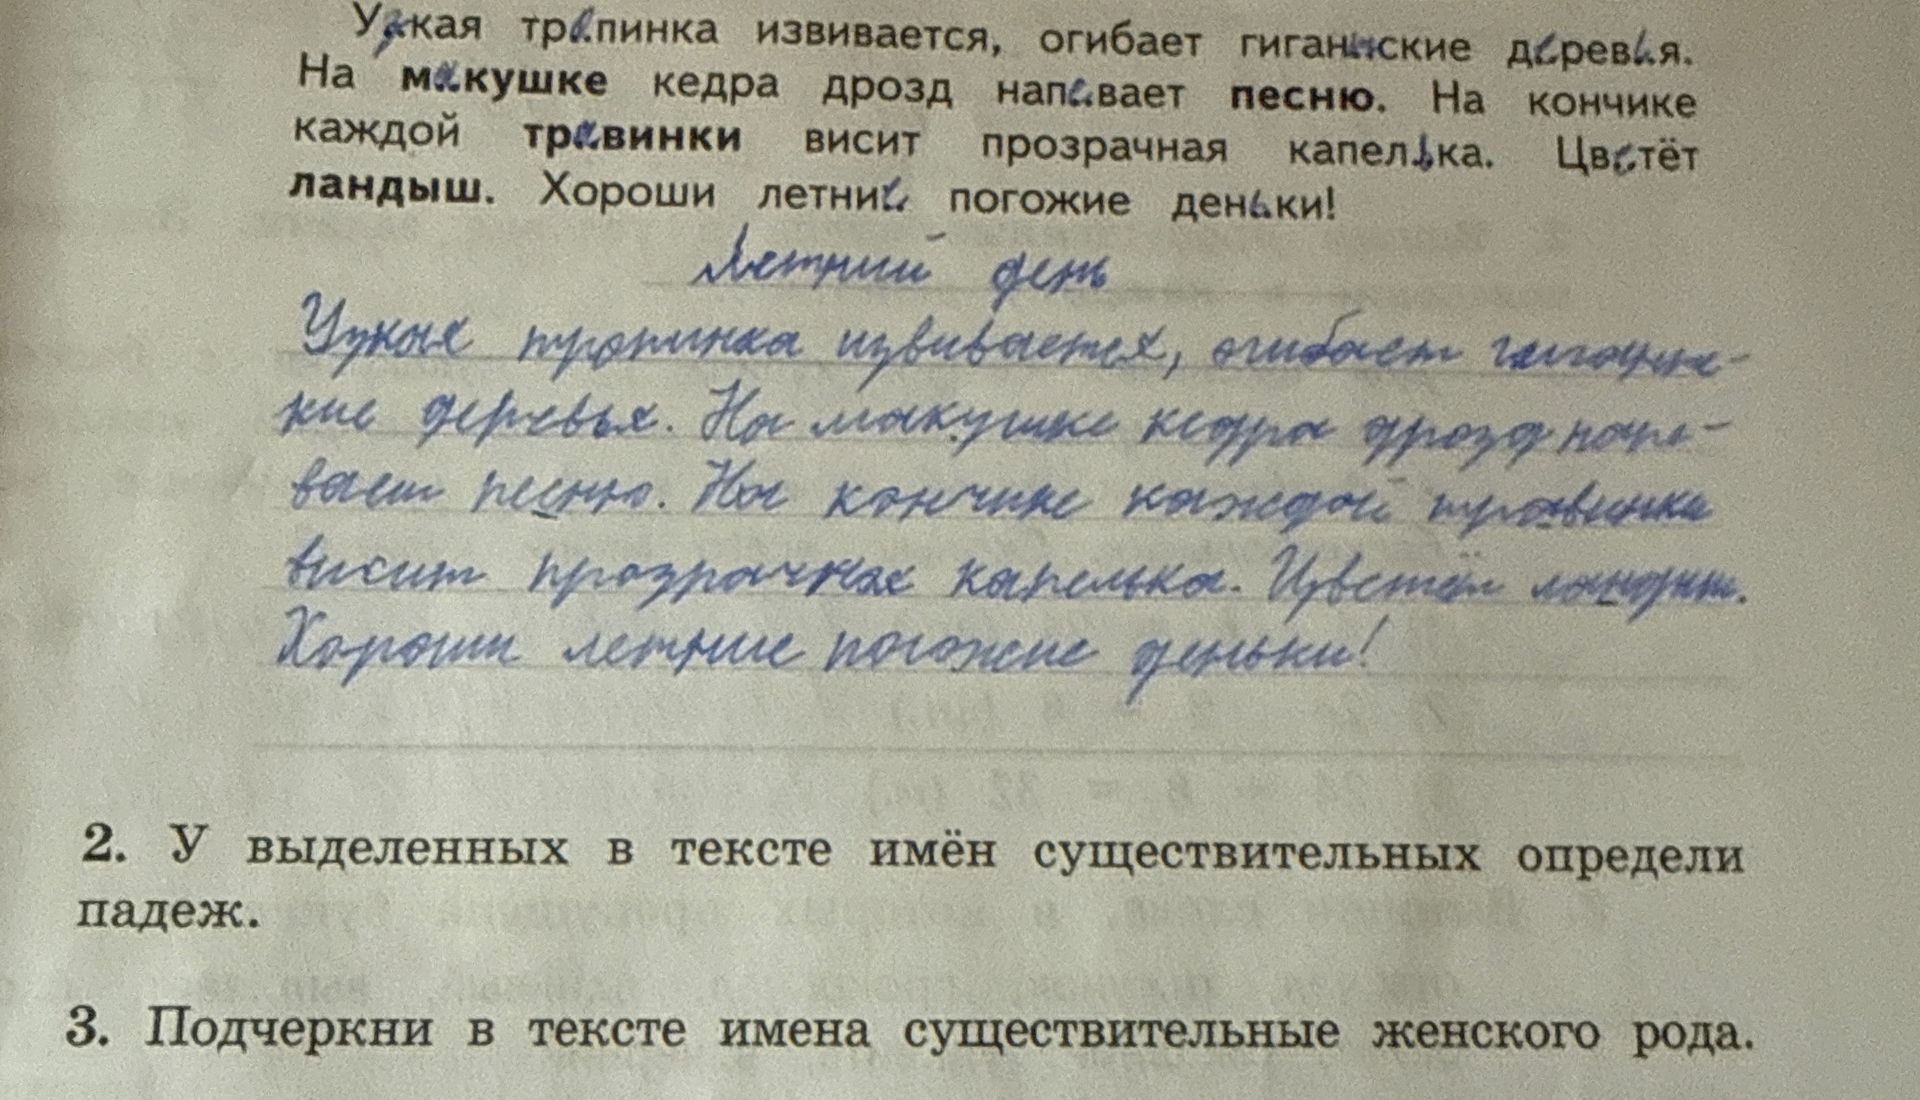 Узкая тропинка извивается, огибает гигантские деревья.
На макушке кедра дрозд напевает песню. На кончике
каждой травинки висит прозрачная капелька. Цветёт
ландыш. Хороши летние погожие деньки!
Летний день
Узкая тропинка извивается, огибает
кие деревья. На макушке кедра дрозд напе-
вает песню. На кончике каждой травинки
висит прозрачная капелька. Цветёт ландыш.
Хороши летние погожие деньки!
2. У выделенных в тексте имён существительных определи
падеж.
3. Подчеркни в тексте имена существительные женского рода.